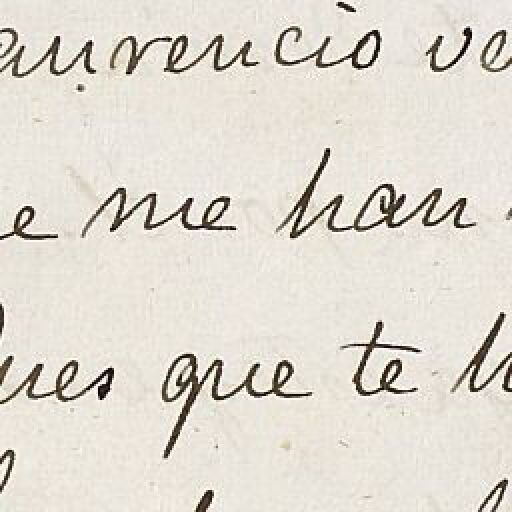 aurencio ve
e me han
ues que te h